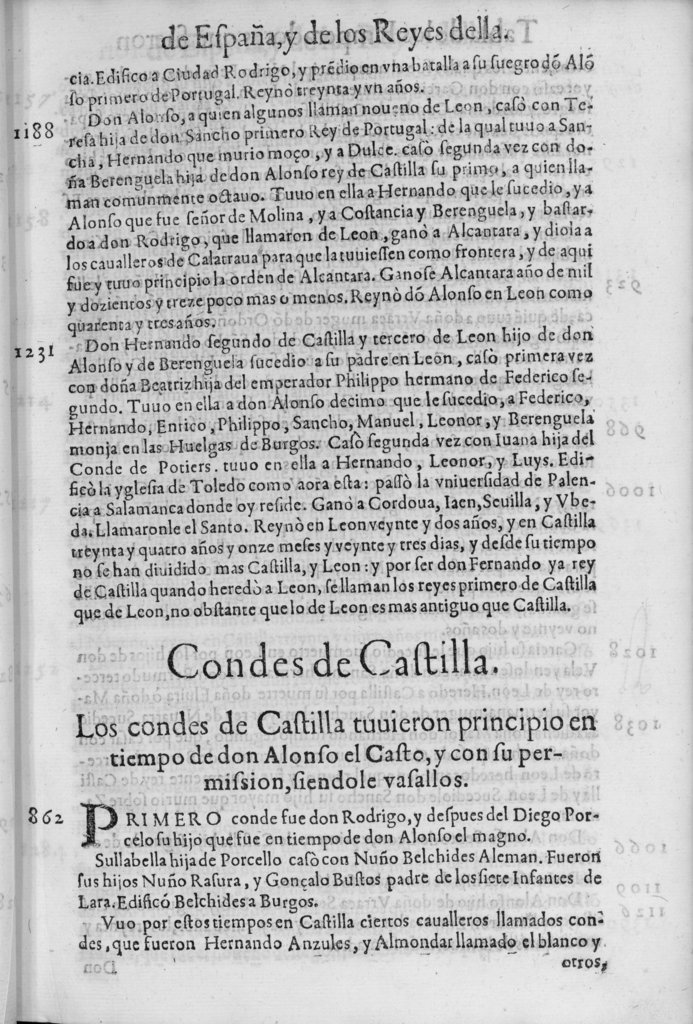 de España, y de los Reyes della.
cia. Edifico a Ciudad Rodrigo, y prēdio en vna batalla a su suegro dō Alō
so primero de Portugal. Reynò treynta y vn años.
1188 Don Alonso, a quien algunos llaman noueno de Leon, casò con Te-
resa hija de don Sancho primero Rey de Portugal: de la qual tuuo a San-
cha, Hernando que murio moço, y a Dulce. casò segunda vez con do-
ña Berenguela hija de don Alonso rey de Castilla su primo, a quien lla-
man comunmente octauo. Tuuo en ella a Hernando que le sucedio, y a
Alonso que fue señor de Molina, y a Costancia y Berenguela, y bastar-
do a don Rodrigo, que llamaron de Leon, ganò a Alcantara, y diola a
los caualleros de Calatraua para que la tuuiessen como frontera, y de aqui
fue y tuuo principio la orden de Alcantara. Ganose Alcantara año de mil
y dozientos y treze poco mas o menos. Reynò dō Alonso en Leon como
quarenta y tres años.
1231 Don Hernando segundo de Castilla y tercero de Leon hijo de don
Alonso y de Berenguela sucedio a su padre en Leon, casò primera vez
con doña Beatriz hija del emperador Philippo hermano de Federico se-
gundo. Tuuo en ella a don Alonso decimo que le sucedio, a Federico,
Hernando, Enrico, Philippo, Sancho, Manuel, Leonor, y Berenguela
monja en las Huelgas de Burgos. Casò segunda vez con Iuana hija del
Conde de Potiers. tuuo en ella a Hernando, Leonor, y Luys. Edi-
ficò la yglesia de Toledo como aora esta: passò la vniuersidad de Palen-
cia a Salamanca donde oy reside. Ganò a Cordoua, Iaen, Seuilla, y Vbe-
da. Llamaronle el Santo. Reynò en Leon veynte y dos años, y en Castilla
treynta y quatro años y onze meses y veynte y tres dias, y desde su tiempo
no se han diuidido mas Castilla, y Leon: y por ser don Fernando ya rey
de Castilla quando heredò a Leon, se llaman los reyes primero de Castilla
que de Leon, no obstante que lo de Leon es mas antiguo que Castilla.
Condes de Castilla.
Los condes de Castilla tuuieron principio en
tiempo de don Alonso el Casto, y con su per-
mission, siendole vasallos.
862 PRIMERO conde fue don Rodrigo, y despues del Diego Por-
celo su hijo que fue en tiempo de don Alonso el magno.
Sullabella hija de Porcello casò con Nuño Belchides Aleman. Fueron
sus hijos Nuño Rasura, y Gonçalo Bustos padre de los siete Infantes de
Lara. Edificò Belchides a Burgos.
Vuo por estos tiempos en Castilla ciertos caualleros llamados con-
des, que fueron Hernando Anzules, y Almondar llamado el blanco y
otros,